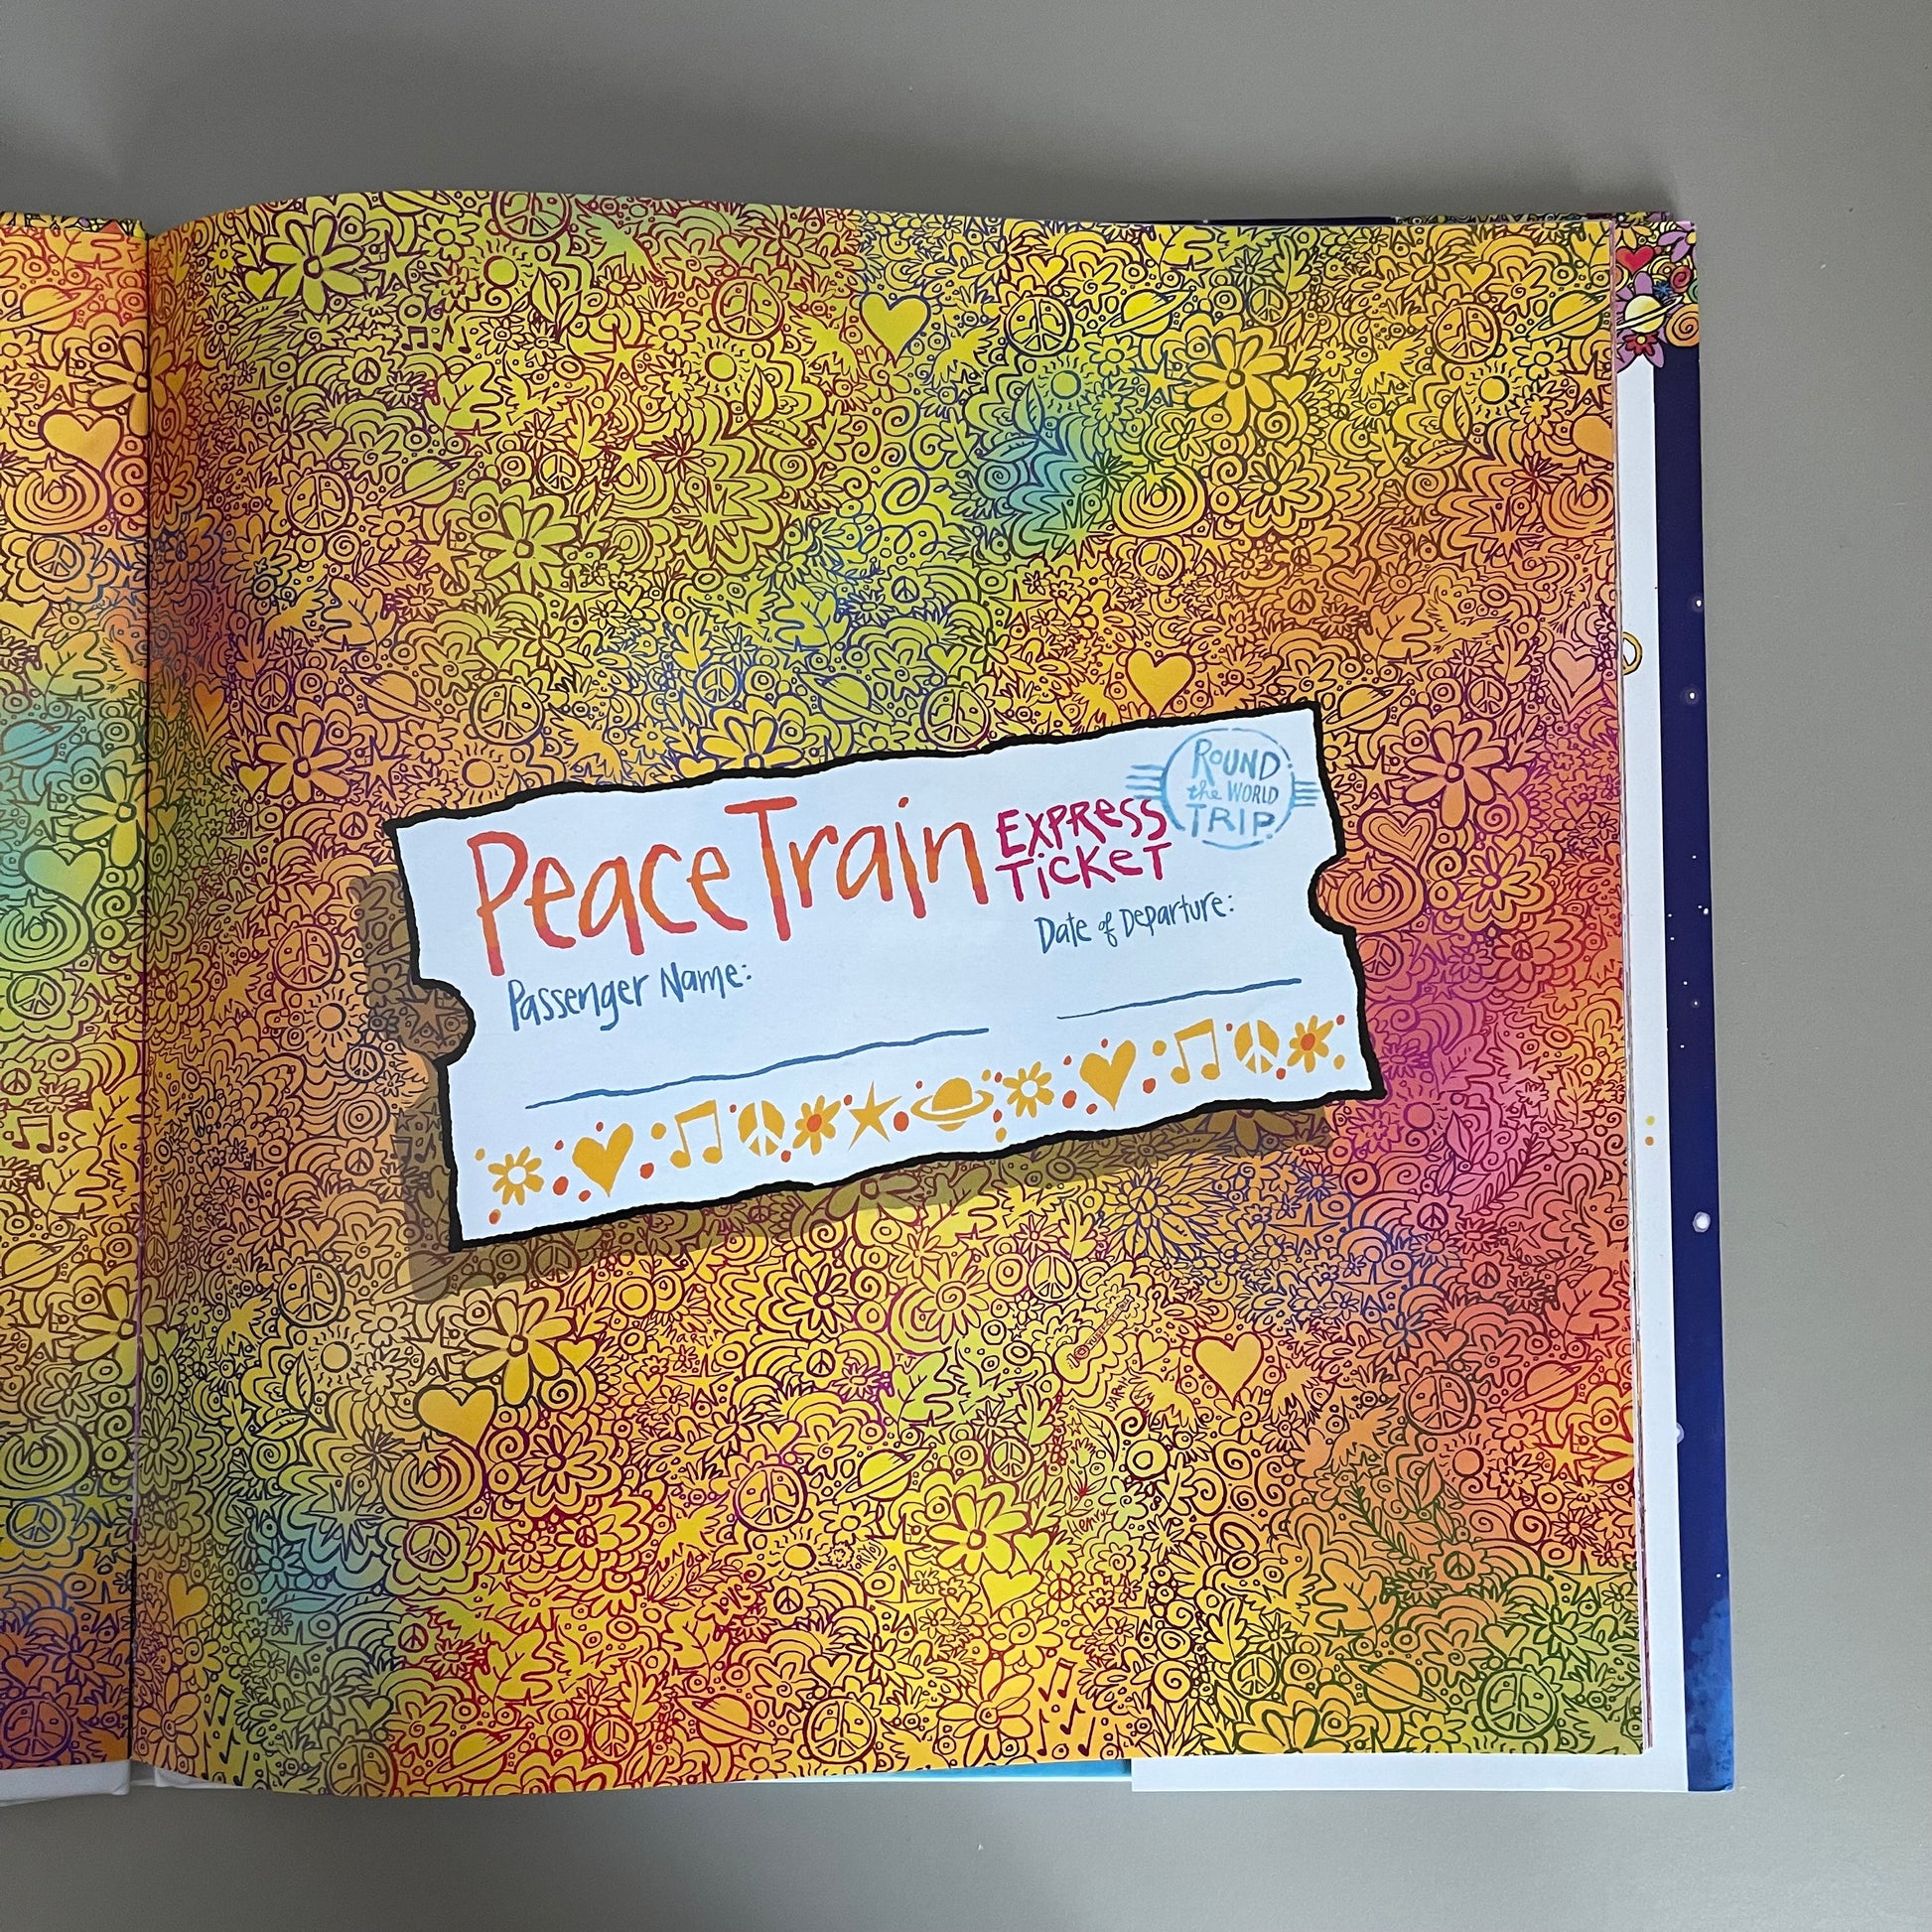 Peace Train
EXPRESS
TiCKeT
ROUND
the WORLD
TRIP
Passenger Name:
Date of Departure:
SARAH
Henry
LOVE